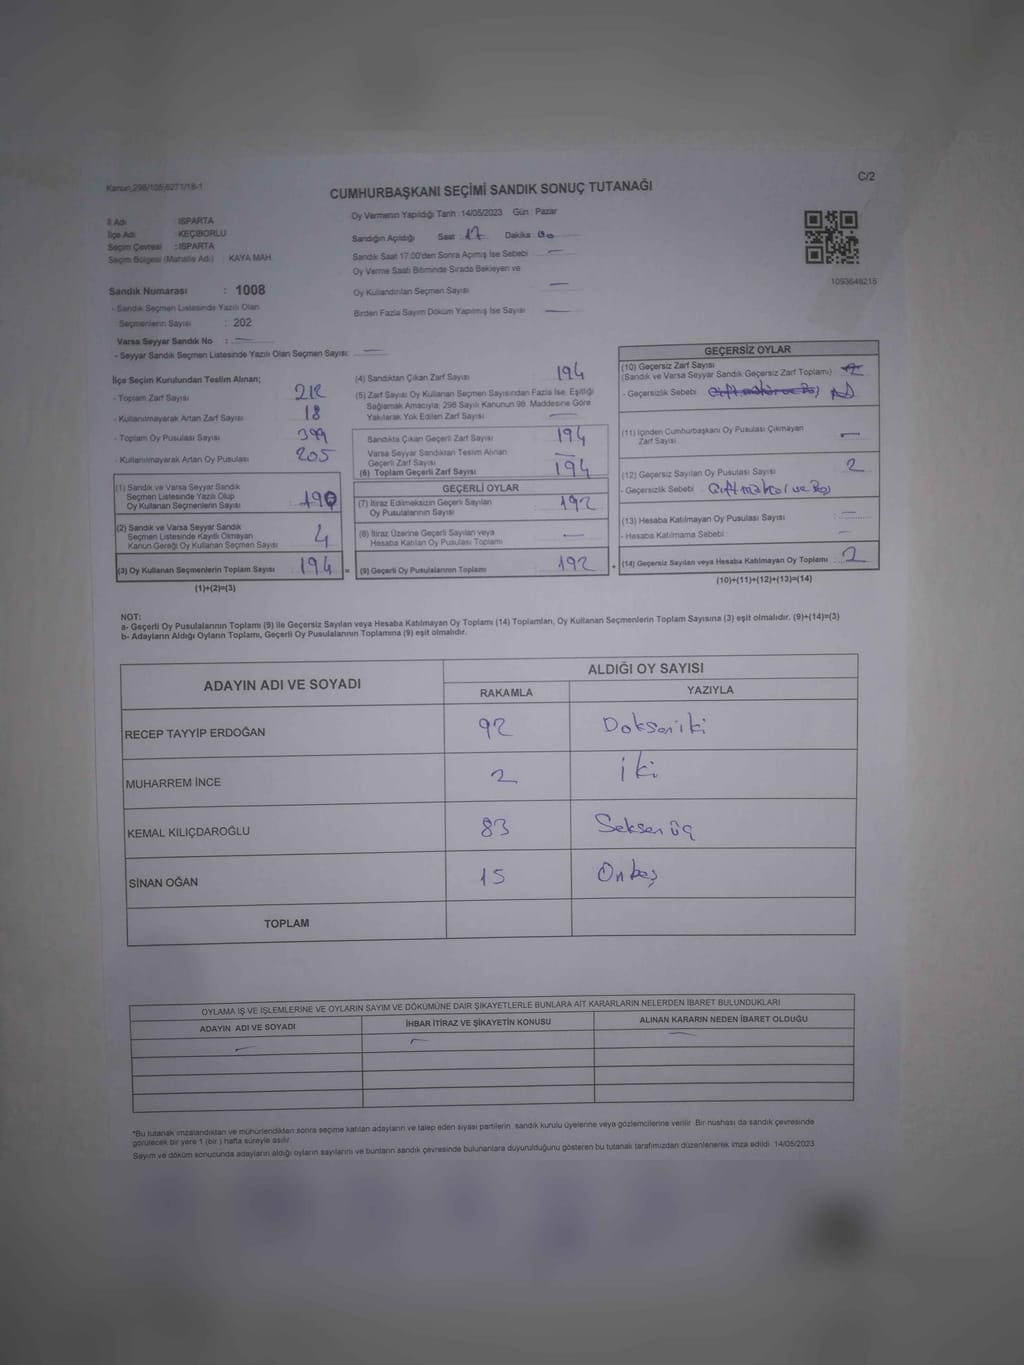 Kanun;298/105;6271/18-1
C/2
CUMHURBAŞKANI SEÇİMİ SANDIK SONUÇ TUTANAĞI
İl Adı : ISPARTA
İlçe Adı : KEÇİBORLU
Seçim Çevresi : ISPARTA
Seçim Bölgesi (Mahalle Adı) : KAYA MAH.
Sandık Numarası : 1008
- Sandık Seçmen Listesinde Yazılı Olan
Seçmenlerin Sayısı : 202
Varsa Seyyar Sandık No : —
- Seyyar Sandık Seçmen Listesinde Yazılı Olan Seçmen Sayısı: —
Oy Vermenin Yapıldığı Tarih : 14/05/2023 Gün : Pazar
Sandığın Açıldığı Saat : 17 Dakika : 00
Sandık Saat 17.00'den Sonra Açılmış İse Sebebi —
Oy Verme Saati Bitiminde Sırada Bekleyen ve
Oy Kullandırılan Seçmen Sayısı —
Birden Fazla Sayım Döküm Yapılmış İse Sayısı —
1093648215
İlçe Seçim Kurulundan Teslim Alınan;
- Toplam Zarf Sayısı 212
- Kullanılmayarak Artan Zarf Sayısı 18
- Toplam Oy Pusulası Sayısı 399
- Kullanılmayarak Artan Oy Pusulası 205
(1) Sandık ve Varsa Seyyar Sandık
Seçmen Listesinde Yazılı Olup
Oy Kullanan Seçmenlerin Sayısı : 190
(2) Sandık ve Varsa Seyyar Sandık
Seçmen Listesinde Kayıtlı Olmayan
Kanun Gereği Oy Kullanan Seçmen Sayısı : 4
(3) Oy Kullanan Seçmenlerin Toplam Sayısı : 194 =
(1)+(2)=(3)
(4) Sandıktan Çıkan Zarf Sayısı 194
(5) Zarf Sayısı Oy Kullanan Seçmen Sayısından Fazla İse, Eşitliği
Sağlamak Amacıyla; 298 Sayılı Kanunun 98. Maddesine Göre
Yakılarak Yok Edilen Zarf Sayısı —
Sandıkta Çıkan Geçerli Zarf Sayısı : 194
Varsa Seyyar Sandıktan Teslim Alınan
Geçerli Zarf Sayısı —
(6) Toplam Geçerli Zarf Sayısı : 194
GEÇERLİ OYLAR
(7) İtiraz Edilmeksizin Geçerli Sayılan
Oy Pusulalarının Sayısı : 192
(8) İtiraz Üzerine Geçerli Sayılan veya
Hesaba Katılan Oy Pusulası Toplamı : —
(9) Geçerli Oy Pusulalarının Toplamı : 192 +
GEÇERSİZ OYLAR
(10) Geçersiz Zarf Sayısı
(Sandık ve Varsa Seyyar Sandık Geçersiz Zarf Toplamı) :
- Geçersizlik Sebebi
(11) İçinden Cumhurbaşkanı Oy Pusulası Çıkmayan
Zarf Sayısı : —
(12) Geçersiz Sayılan Oy Pusulası Sayısı : 2
- Geçersizlik Sebebi : ve Boş
(13) Hesaba Katılmayan Oy Pusulası Sayısı : —
- Hesaba Katılmama Sebebi —
(14) Geçersiz Sayılan veya Hesaba Katılmayan Oy Toplamı : 2
(10)+(11)+(12)+(13)=(14)
NOT:
a- Geçerli Oy Pusulalarının Toplamı (9) ile Geçersiz Sayılan veya Hesaba Katılmayan Oy Toplamı (14) Toplamları, Oy Kullanan Seçmenlerin Toplam Sayısına (3) eşit olmalıdır. (9)+(14)=(3)
b- Adayların Aldığı Oyların Toplamı, Geçerli Oy Pusulalarının Toplamına (9) eşit olmalıdır.
ADAYIN ADI VE SOYADI
ALDIĞI OY SAYISI
RAKAMLA YAZIYLA
RECEP TAYYİP ERDOĞAN 92 Doksaniki
MUHARREM İNCE 2 iki
KEMAL KILIÇDAROĞLU 83 Seksen üç
SİNAN OĞAN 15 Onbeş
TOPLAM
OYLAMA İŞ VE İŞLEMLERİNE VE OYLARIN SAYIM VE DÖKÜMÜNE DAİR ŞİKAYETLERLE BUNLARA AİT KARARLARIN NELERDEN İBARET BULUNDUKLARI
ADAYIN ADI VE SOYADI İHBAR İTİRAZ VE ŞİKAYETİN KONUSU ALINAN KARARIN NEDEN İBARET OLDUĞU
— — —
*Bu tutanak imzalandıktan ve mühürlendikten sonra seçime katılan adayların ve talep eden siyasi partilerin sandık kurulu üyelerine veya gözlemcilerine verilir. Bir nüshası da sandık çevresinde
görülecek bir yere 1 (bir ) hafta süreyle asılır.
Sayım ve döküm sonucunda adayların aldığı oyların sayılarını ve bunların sandık çevresinde bulunanlara duyurulduğunu gösteren bu tutanak tarafımızdan düzenlenerek imza edildi. 14/05/2023